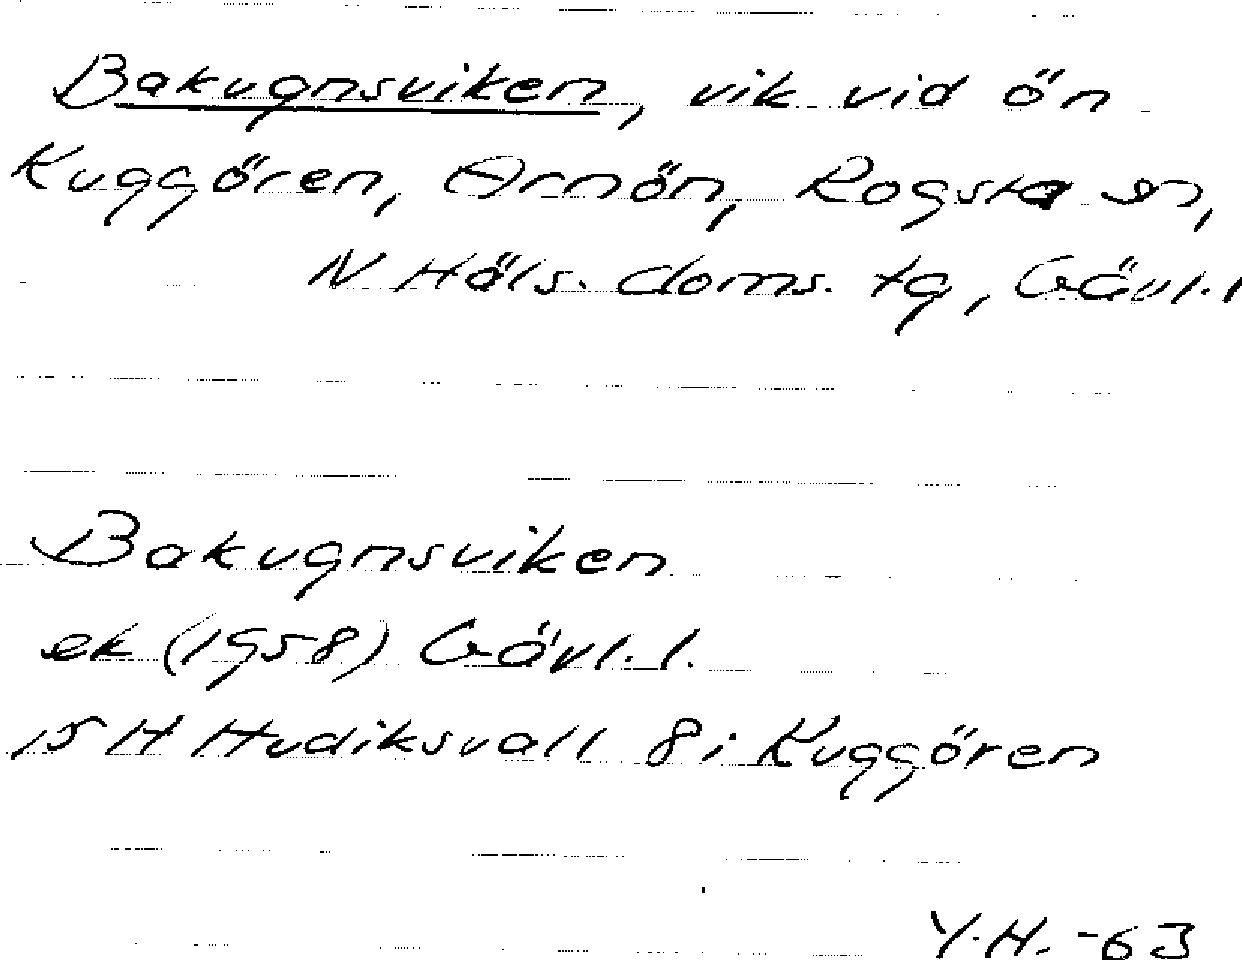 Bakugnsviken, vik vid ön
Kuggören, Arnön, Rogsta sn,
N Häls. doms. tg, Gävl. l
Bakugnsviken
ek (1958) Gävl. l.
15 H Hudiksvall 8i Kuggören
Y.H. -63